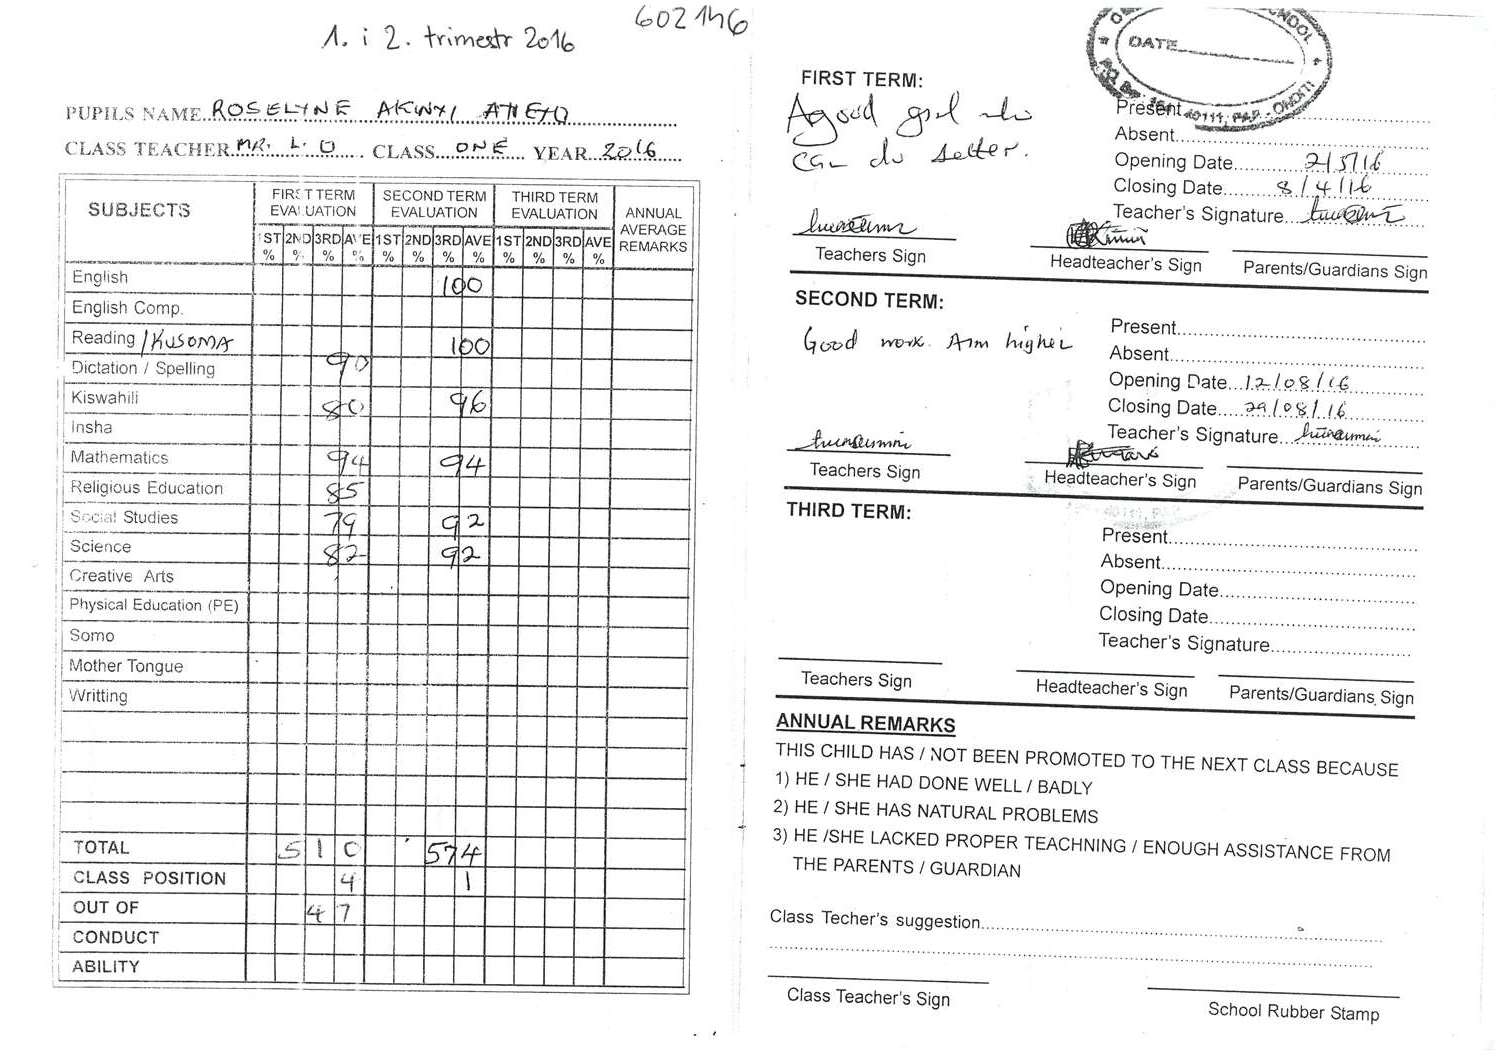 602146
1. i 2. trimestr 2016
PUPILS NAME ROSELYNE AKINYI ATIENO
CLASS TEACHER MR. L. O CLASS ONE YEAR 2016
SUBJECTS FIRST TERM EVALUATION SECOND TERM EVALUATION THIRD TERM EVALUATION ANNUAL AVERAGE REMARKS
1ST % 2ND % 3RD % AVE % 1ST % 2ND % 3RD % AVE % 1ST % 2ND % 3RD % AVE %
English 100
English Comp.
Reading /KUSOMA 90 100
Dictation / Spelling
Kiswahili 80 96
Insha
Mathematics 94 94
Religious Education 85
Social Studies 79 92
Science 82 92
Creative Arts
Physical Education (PE)
Somo
Mother Tongue
Writting
TOTAL 510 574
CLASS POSITION 4 1
OUT OF 47
CONDUCT
ABILITY
SCHOOL
DATE
40111, PAP - ONDITI
FIRST TERM:
A good girl who
can do better.
Present
Absent
Opening Date 2/5/16
Closing Date 8/4/16
Teacher's Signature
Teachers Sign Headteacher's Sign Parents/Guardians Sign
SECOND TERM:
Good work. Aim higher
Present
Absent
Opening Date 12/08/16
Closing Date 29/08/16
Teacher's Signature
Teachers Sign Headteacher's Sign Parents/Guardians Sign
THIRD TERM:
40111, PAP
Present
Absent
Opening Date
Closing Date
Teacher's Signature
Teachers Sign Headteacher's Sign Parents/Guardians Sign
ANNUAL REMARKS
THIS CHILD HAS / NOT BEEN PROMOTED TO THE NEXT CLASS BECAUSE
1) HE / SHE HAD DONE WELL / BADLY
2) HE / SHE HAS NATURAL PROBLEMS
3) HE /SHE LACKED PROPER TEACHNING / ENOUGH ASSISTANCE FROM
THE PARENTS / GUARDIAN
Class Techer's suggestion
Class Teacher's Sign School Rubber Stamp